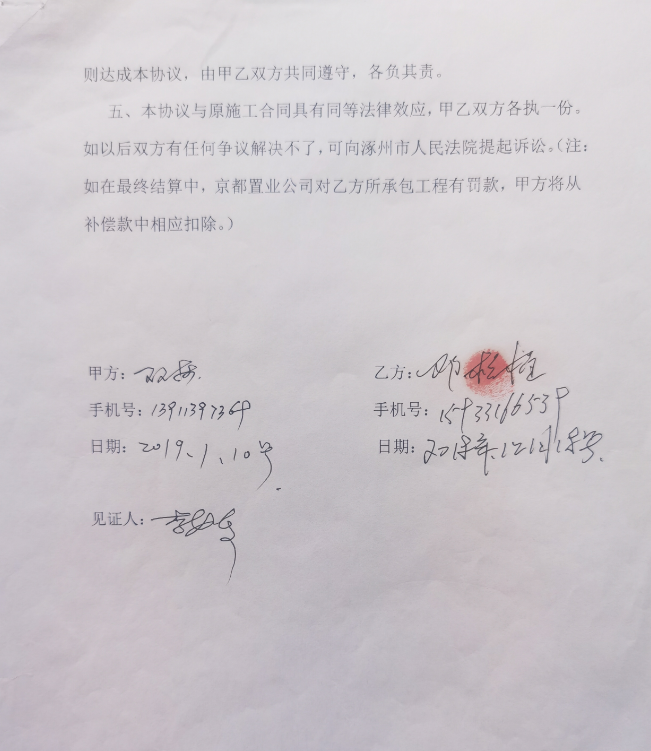 则达成本协议，由甲乙双方共同遵守，各负其责。
五、本协议与原施工合同具有同等法律效应，甲乙双方各执一份。
如以后双方有任何争议解决不了，可向涿州市人民法院提起诉讼。（注：
如在最终结算中，京都置业公司对乙方所承包工程有罚款，甲方将从
补偿款中相应扣除。）
甲方：
乙方：
手机号：13911397369
手机号：15933166539
日期：2019.1.10号
日期：2018年12月18号
见证人：